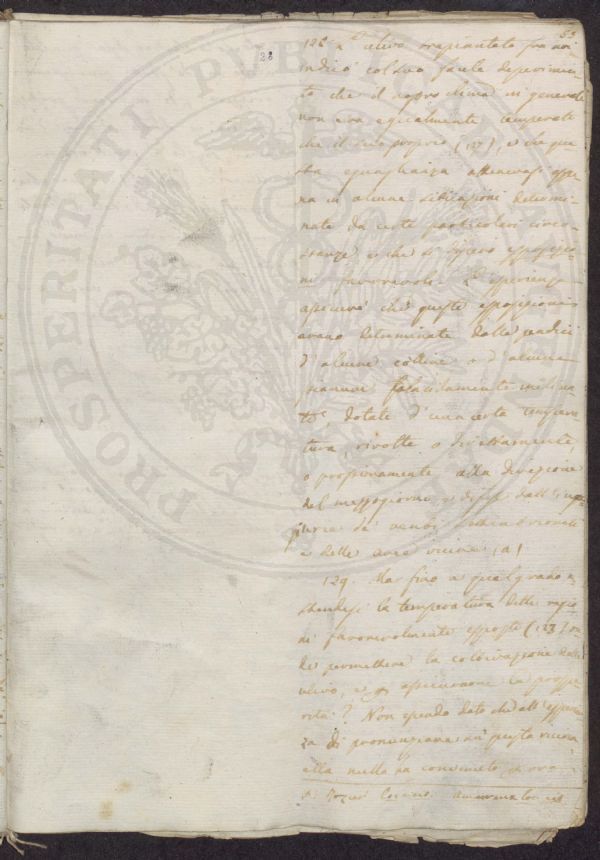 53
28
126 L'ulivo trapiantato fra noi
indicò col suo facile deperimen-
to che il nostro clima in generale
non era egualmente temperato
che il suo proprio (127), e che que-
sta eguaglianza ottenevasi appe-
na in alcune situazioni determi-
nate da certe particolari circo-
stanze e che si dissero esposizio-
ni favorevoli. L'esperienza
assicurò che queste esposizioni
erano determinate dalle pendici
d'alcune colline o d'alcune
pianure placidamente inclina-
te, dotate d'una certa tempera-
tura, rivolte o direttamente,
o prossimamente alla direzione
del mezzogiorno e difese dall'ingiu-
ria de' venti settentrionali
e delle arie vicine (a)
129. Ma fino a qual grado
stendesi la temperatura delle
favorevolmente esposte (123)
permettere la coltivazione
ulivo, e assicurarne la prospe-
rità? Non essendo dato che all'esperien-
za di pronunziare in questa ricerca
ella nulla ha
PROSPERITATI PUBLICAE